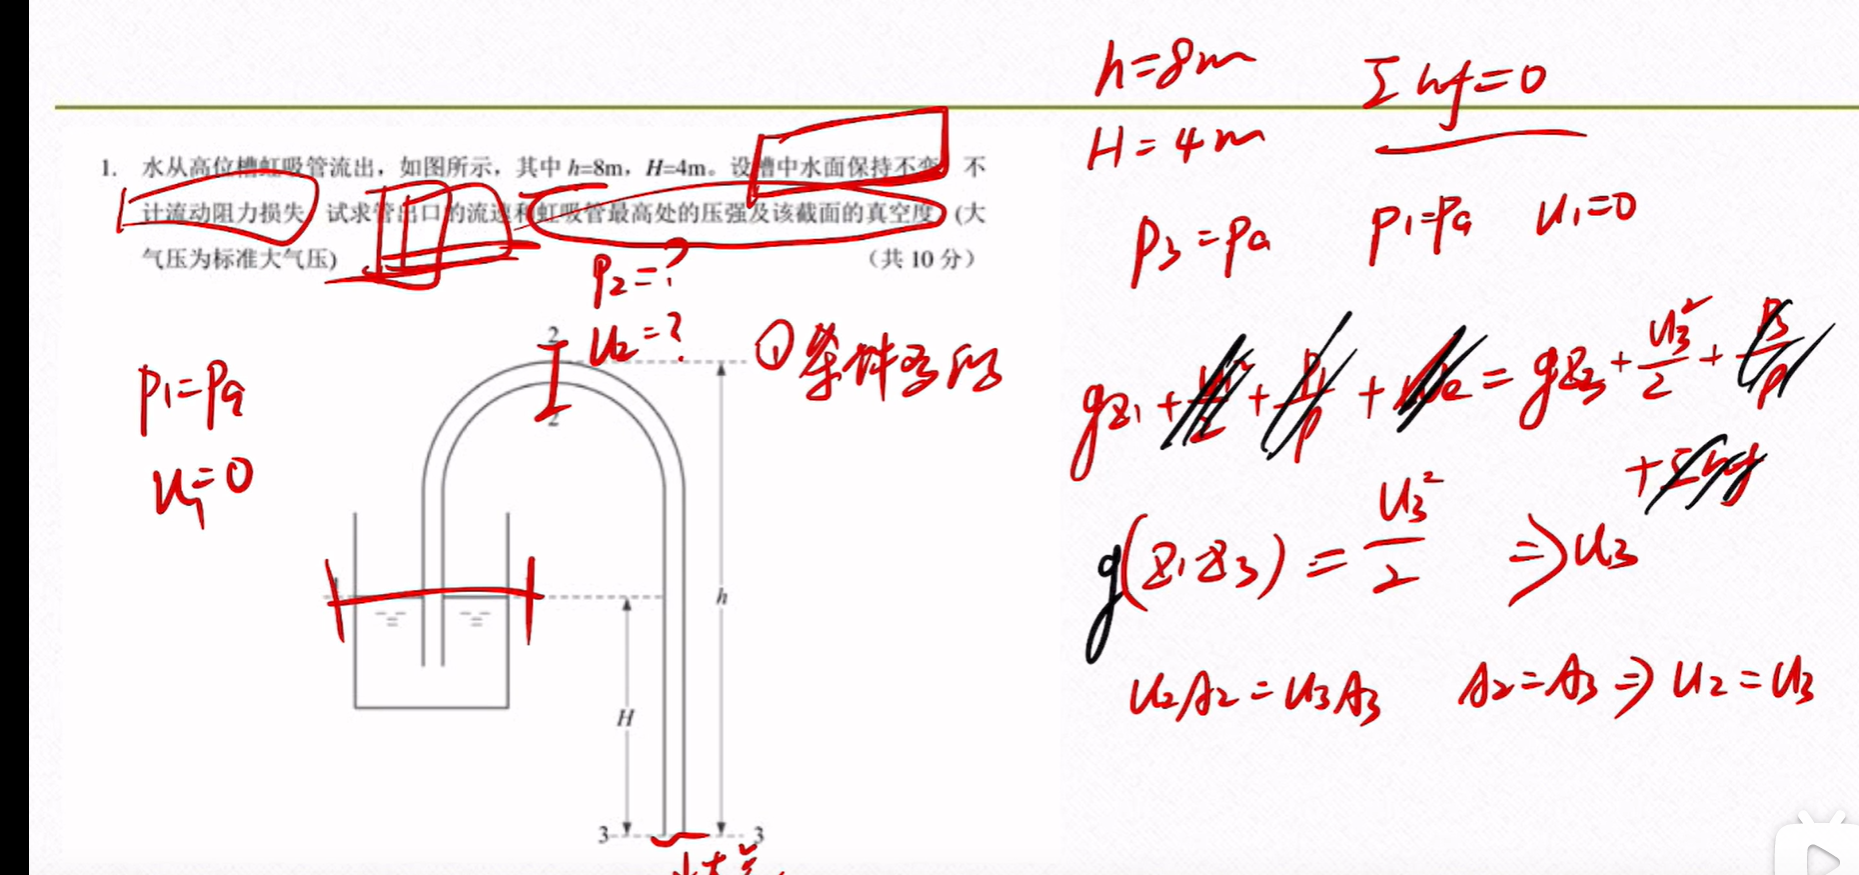 1. 水从高位槽虹吸管流出，如图所示，其中 h=8m，H=4m。设槽中水面保持不变 不
计流动阻力损失 试求管出口的流速和虹吸管最高处的压强及该截面的真空度 (大
气压为标准大气压)
（共 10 分）
P₂=?
u₂=?
2
2
P₁=Pa
u₁=0
h
H
3
3
h=8m
Σhf=0
H=4m
P₃=Pa
P₁=Pa u₁=0
gz₁+ + + = gz₃+u₃²/2+
+Σhf
g(z₁-z₃)=u₃²/2 ⇒u₃
u₂A₂=u₃A₃ A₂=A₃⇒u₂=u₃